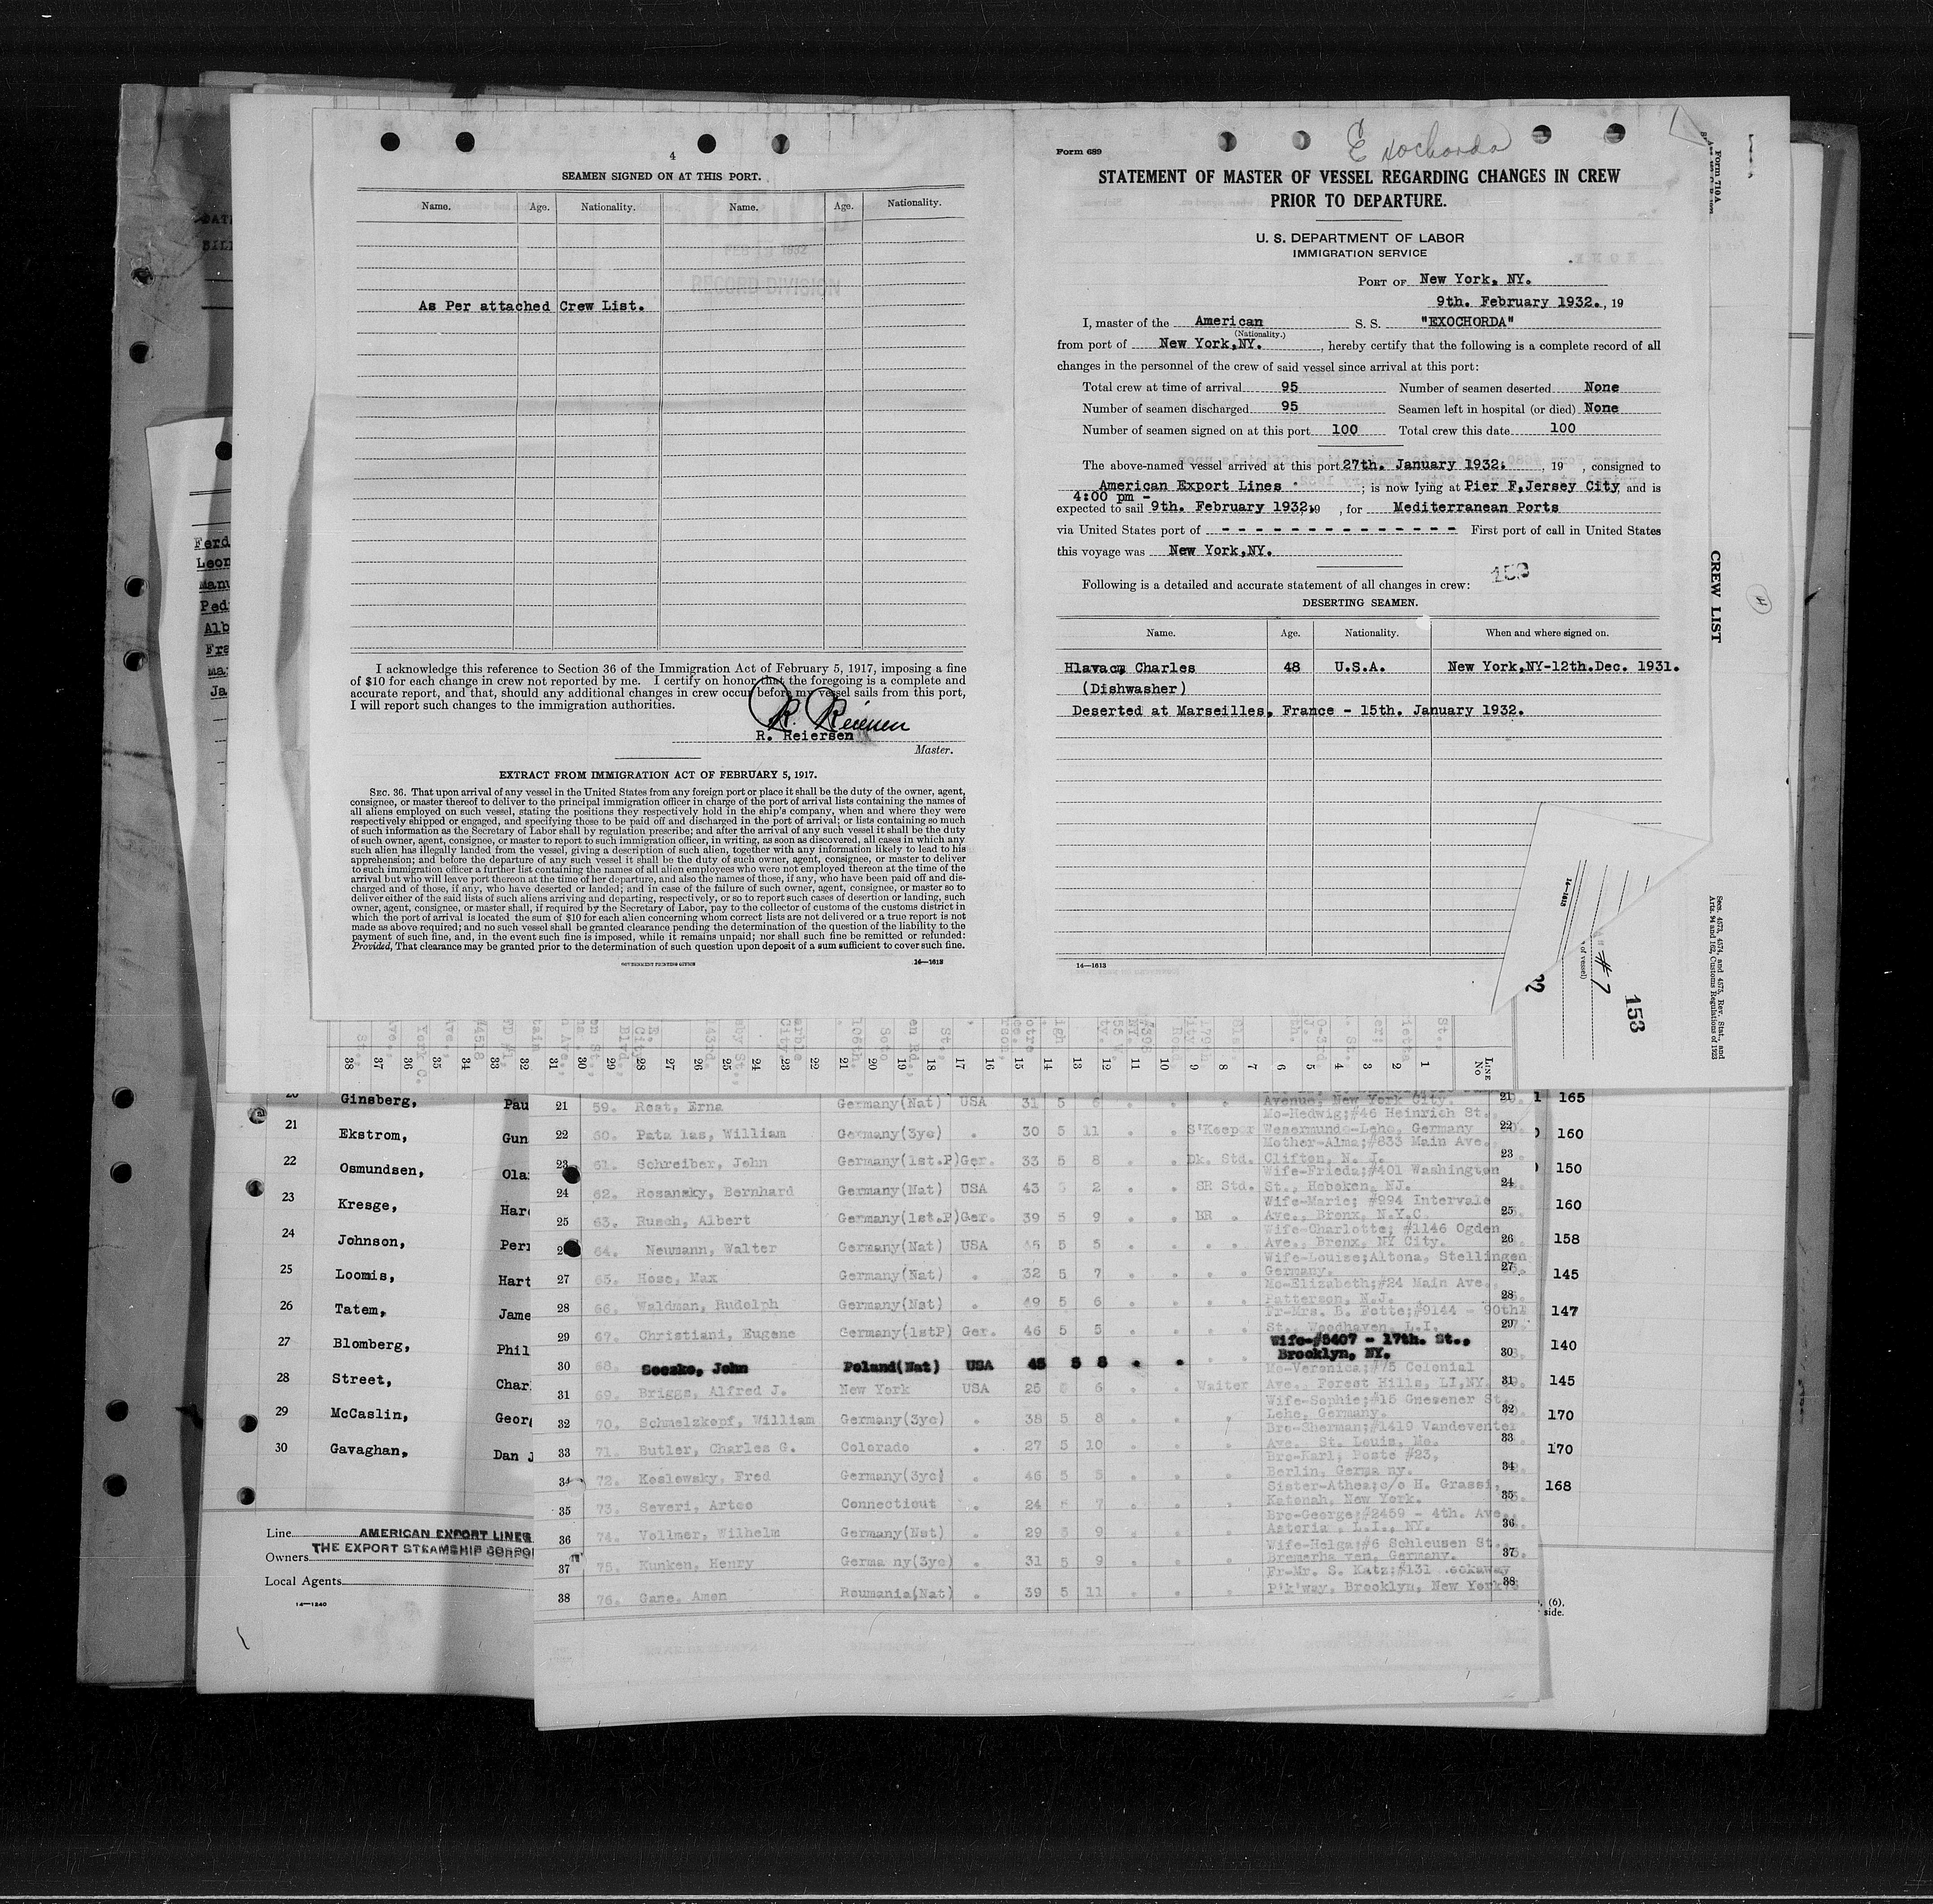 4
SEAMEN SIGNED ON AT THIS PORT.
Name. Age. Nationality. Name. Age. Nationality.
RECORD DIVISION
As Per attached Crew List.
I acknowledge this reference to Section 36 of the Immigration Act of February 5, 1917, imposing a fine
of $10 for each change in crew not reported by me. I certify on honor that the foregoing is a complete and
accurate report, and that, should any additional changes in crew occur before my vessel sails from this port,
I will report such changes to the immigration authorities.
R. Reiersen
R. Reiersen
Master.
EXTRACT FROM IMMIGRATION ACT OF FEBRUARY 5, 1917.
SEC. 36. That upon arrival of any vessel in the United States from any foreign port or place it shall be the duty of the owner, agent,
consignee, or master thereof to deliver to the principal immigration officer in charge of the port of arrival lists containing the names of
all aliens employed on such vessel, stating the positions they respectively hold in the ship's company, when and where they were
respectively shipped or engaged, and specifying those to be paid off and discharged in the port of arrival; or lists containing so much
of such information as the Secretary of Labor shall by regulation prescribe; and after the arrival of any such vessel it shall be the duty
of such owner, agent, consignee, or master to report to such immigration officer, in writing, as soon as discovered, all cases in which any
such alien has illegally landed from the vessel, giving a description of such alien, together with any information likely to lead to his
apprehension; and before the departure of any such vessel it shall be the duty of such owner, agent, consignee, or master to deliver
to such immigration officer a further list containing the names of all alien employees who were not employed thereon at the time of the
arrival but who will leave port thereon at the time of her departure, and also the names of those, if any, who have been paid off and dis-
charged and of those, if any, who have deserted or landed; and in case of the failure of such owner, agent, consignee, or master so to
deliver either of the said lists of such aliens arriving and departing, respectively, or so to report such cases of desertion or landing, such
owner, agent, consignee, or master shall, if required by the Secretary of Labor, pay to the collector of customs of the customs district in
which the port of arrival is located the sum of $10 for each alien concerning whom correct lists are not delivered or a true report is not
made as above required; and no such vessel shall be granted clearance pending the determination of the question of the liability to the
payment of such fine, and, in the event such fine is imposed, while it remains unpaid; nor shall such fine be remitted or refunded:
Provided, That clearance may be granted prior to the determination of such question upon deposit of a sum sufficient to cover such fine.
GOVERNMENT PRINTING OFFICE 14—1613
Form 689
Exochorda
STATEMENT OF MASTER OF VESSEL REGARDING CHANGES IN CREW
PRIOR TO DEPARTURE.
U. S. DEPARTMENT OF LABOR
IMMIGRATION SERVICE
PORT OF New York, NY.
9th. February 1932., 19
I, master of the American S. S. "EXOCHORDA"
(Nationality.)
from port of New York,NY. , hereby certify that the following is a complete record of all
changes in the personnel of the crew of said vessel since arrival at this port:
Total crew at time of arrival 95 Number of seamen deserted None
Number of seamen discharged 95 Seamen left in hospital (or died) None
Number of seamen signed on at this port 100 Total crew this date 100
The above-named vessel arrived at this port 27th. January 1932. , 19 , consigned to
American Export Lines ; is now lying at Pier F,Jersey City, and is
4:00 pm -
expected to sail 9th. February 1932, 19 , for Mediterranean Ports
via United States port of - - - - - - - - - - - - - - First port of call in United States
this voyage was New York,NY.
153
Following is a detailed and accurate statement of all changes in crew:
DESERTING SEAMEN.
Name. Age. Nationality. When and where signed on.
Hlavac, Charles 48 U.S.A. New York,NY-12th.Dec. 1931.
(Dishwasher)
Deserted at Marseilles, France - 15th. January 1932.
14—1613
Form 710A
CREW LIST
Secs. 4573, 4574, and 4575, Rev. Stat., and
Arts. 94 and 162, Customs Regulations of 1923
14—1613
of vessel)
#7
153
38 37 36 35 34 33 32 31 30 29 28 27 26 25 24 23 22 21 20 19 18 17 16 15 14 13 12 11 10 9 8 7 6 5 4 3 2 1 LINE No
Ferd
Leon
Manu
Ped
Alb
Fra
Ma
Ja
Ginsberg, Pau
21 Ekstrom, Gun
22 Osmundsen, Ola
23 Kresge, Har
24 Johnson, Per
25 Loomis, Hart
26 Tatem, Jame
27 Blomberg, Phil
28 Street, Char
29 McCaslin, Geor
30 Gavaghan, Dan J
Line AMERICAN EXPORT LINES
Owners THE EXPORT STEAMSHIP CORPO
Local Agents
14—1240
21 59. Rost, Erna Germany(Nat) USA 31 5 6 Avenue, New York City. 21
Mo-Hedwig;#46 Heinrich St.,
22 60. Pata las, William Germany(3yc) . 30 5 11 . . S'Keeper Wesermunde-Lehe, Germany 22
Mother-Alma;#833 Main Ave.,
23 61. Schreiber, John Germany(1st.P)Ger. 33 5 8 . . Dk. Std. Clifton, N. J. 23
Wife-Frieda;#401 Washington
24 62. Rosansky, Bernhard Germany(Nat) USA 43 5 2 . . SR Std. St., Hoboken, NJ. 24
Wife-Marie; #994 Intervale
25 63. Rusch, Albert Germany(1st.P)Ger. 39 5 9 . . BR . Ave., Bronx, N.Y.C. 25
Wife-Charlotte; #1146 Ogden
64. Neumann, Walter Germany(Nat) USA 45 5 5 . . . . Ave., Bronx, NY City. 26
Wife-Louise;Altona, Stellingen
27 65. Hose, Max Germany(Nat) . 32 5 7 . . . . Germany. 27
Mo-Elizabeth;#24 Main Ave.,
28 66. Waldman, Rudolph Germany(Nat) . 49 5 6 . . . . Patterson, N.J. 28
Fr-Mrs. B. Fotte;#9144 - 90th
29 67. Christiani, Eugene Germany(1stP) Ger. 46 5 5 . . . . St., Woodhaven, L.I. 29
Wife-#5407 - 17th. St.,
30 68. Soczko, John Poland(Nat) USA 45 5 8 . . . . Brooklyn, NY. 30
Mo-Veronica;#75 Colonial
31 69. Briggs, Alfred J. New York USA 25 5 6 . . Waiter Ave., Forest Hills, LI,NY. 31
Wife-Sophie;#15 Gnesener St.,
32 70. Schmelzkopf, William Germany(3yc) . 38 5 8 . . . Lehe, Germany. 32
Bro-Sherman;#1419 Vandeventer
33 71. Butler, Charles G. Colorado . 27 5 10 . . . Ave. St. Louis, Mo. 33
Bro-Karl; Poste #23,
34 72. Koslowsky, Fred Germany(3yc) . 46 5 5 . . . Berlin, Germa ny. 34
Sister-Athea;c/o H. Grassi,
35 73. Severi, Arteo Connecticut . 24 5 7 . . . Katonah, New York. 35
Bro-George;#2459 - 4th. Ave.,
36 74. Vollmer, Wilhelm Germany(Nat) . 29 5 9 . . . Astoria, L.I., NY. 36
Wife-Helga;#6 Schleusen St.,
37 75. Kunken, Henry Germa ny(3yc) . 31 5 9 . . . Bremerha ven, Germany. 37
Fr-Mr. S. Katz;#131
38 76. Gane, Amon Roumania(Nat) . 39 5 11 . . . P'k'way, Brooklyn, New York 38
165
160
150
160
158
145
147
140
145
170
170
168
, (6),
side.